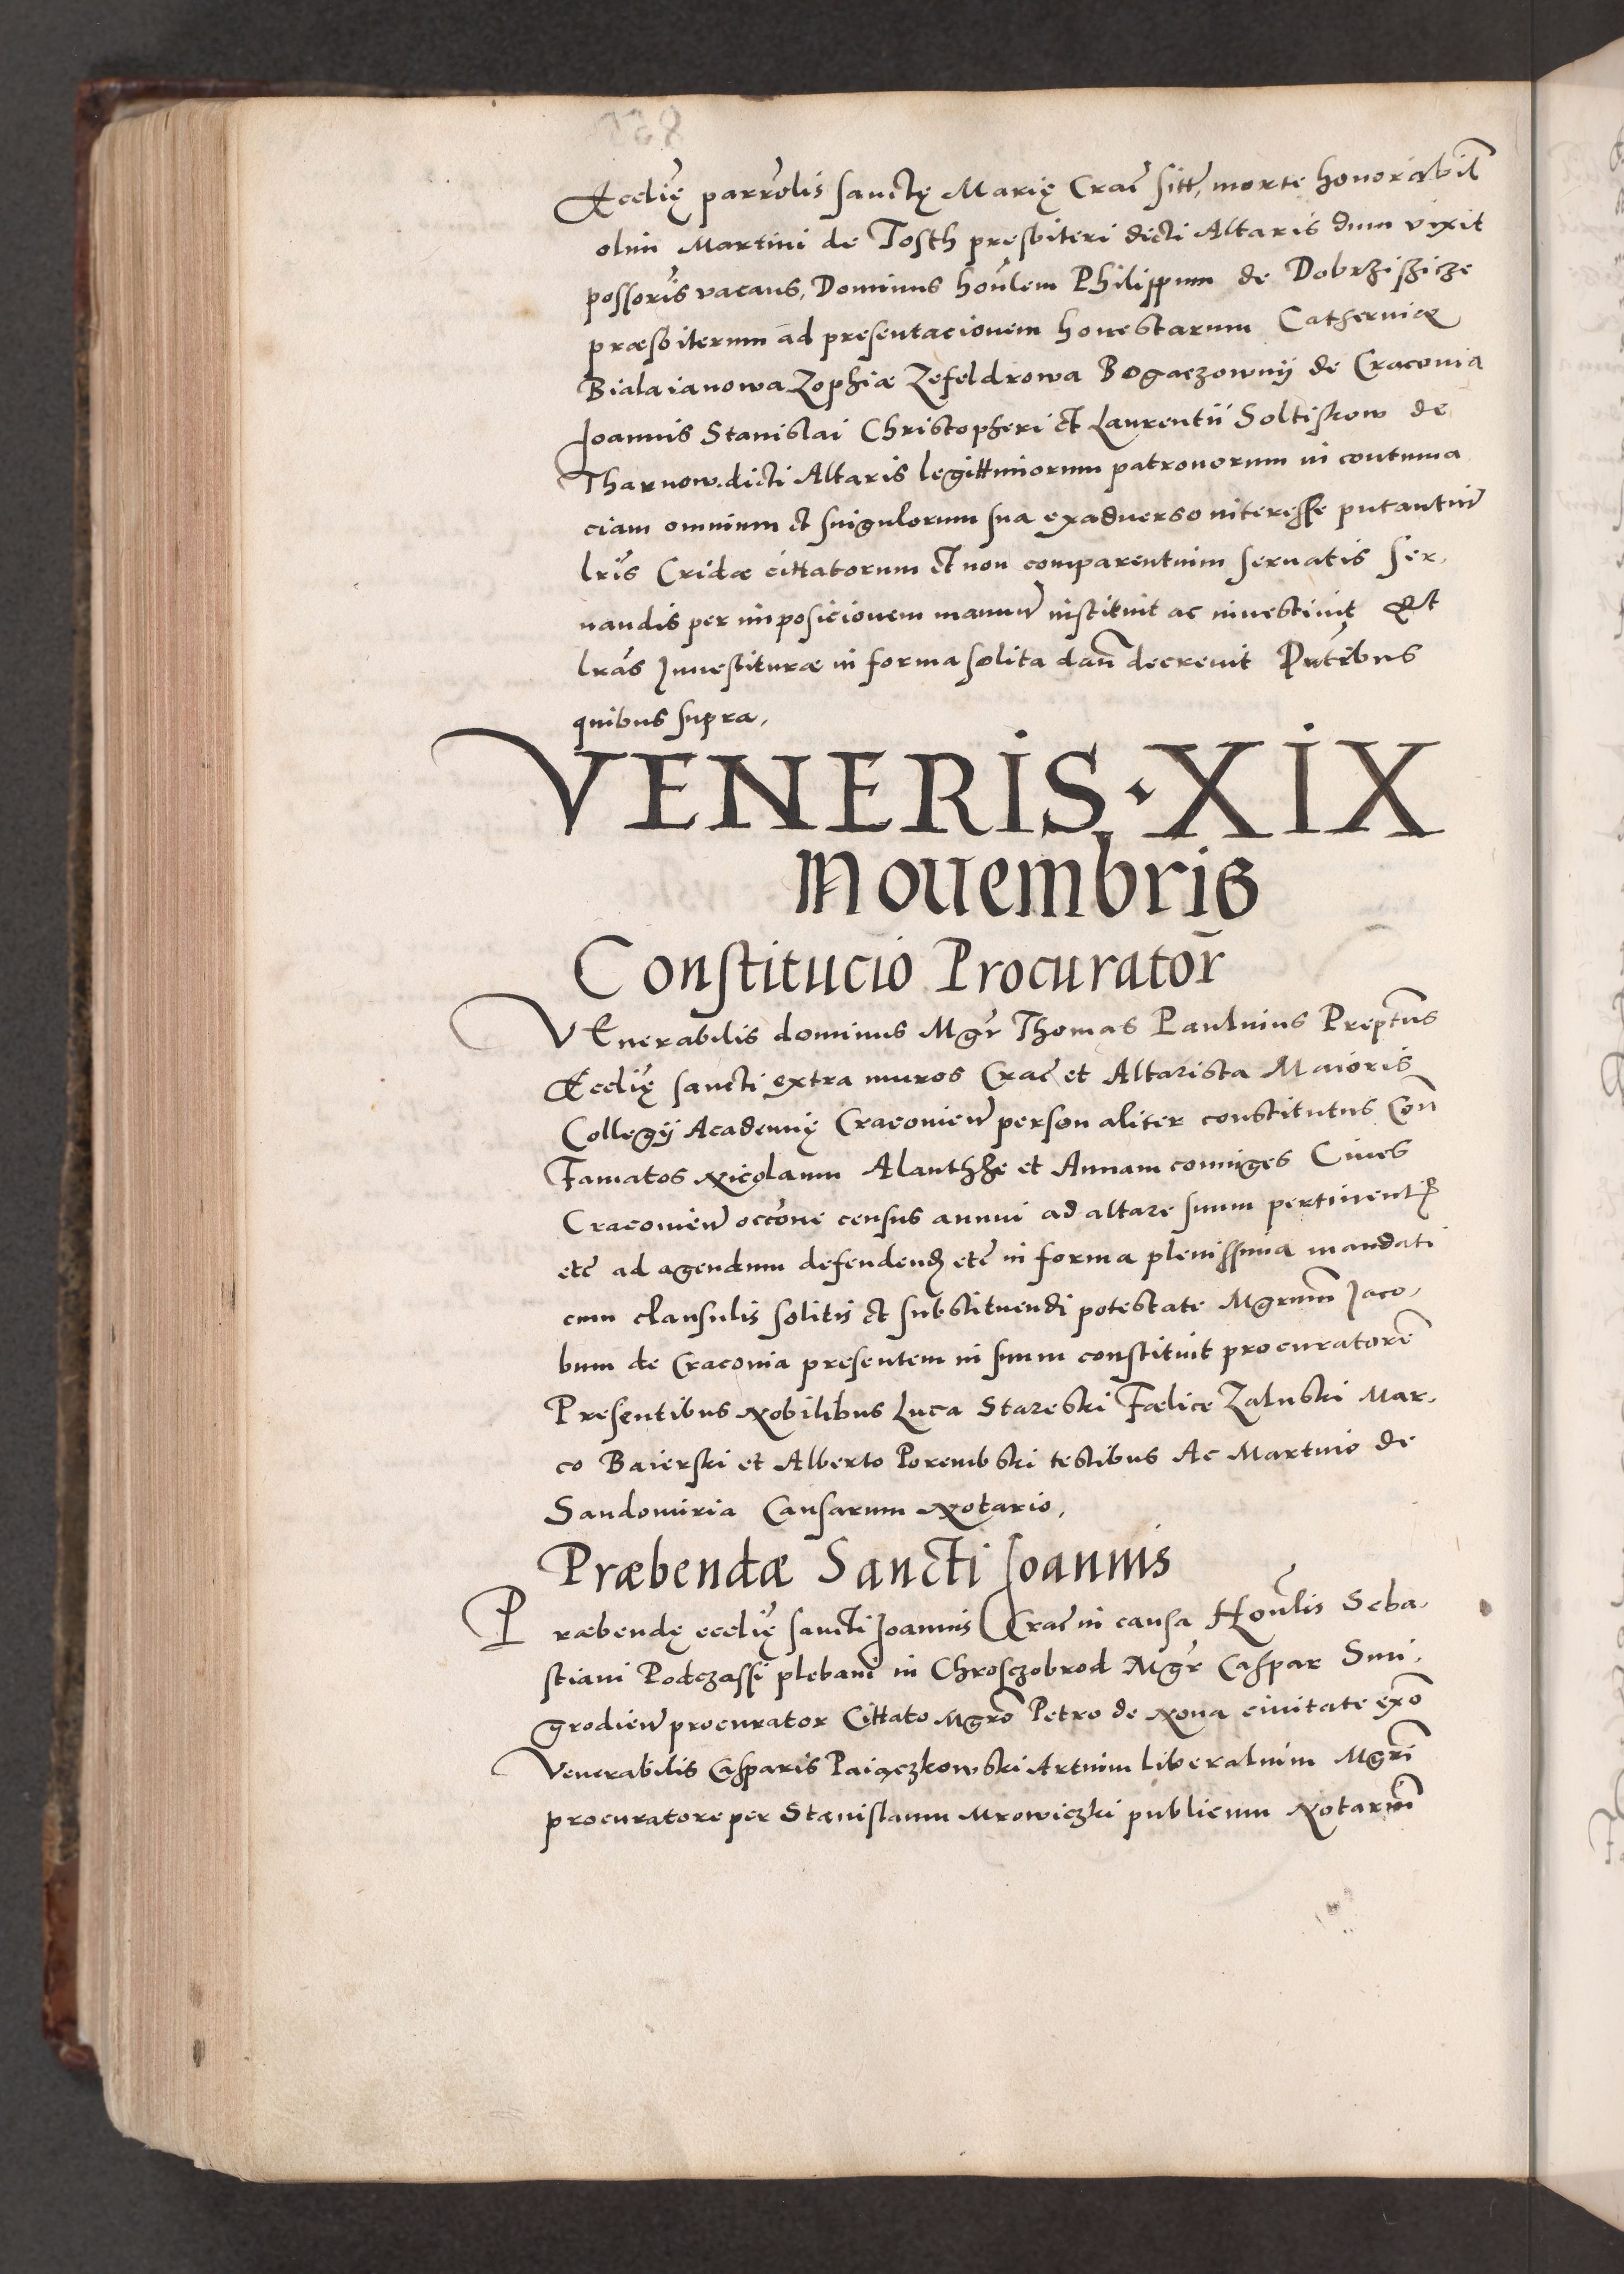 Ecclię parrolis sanctę Marię Crac̃ sitt, morte honorabil̃
olim Martini de Tosth presbiteri dicti Altaris dum vixit
possoris vacans, Dominus honlem Philippum de Dobrzisziche
præsbiterum ad presentacionem honestarum Catherinæ
Biala ianowa Zophiæ Zefeldrowa Bogaczownij de Craconia
Joannis Stanislai Christopheri et Laurentii Soltiskow de
Tharnow. dicti Altaris legittimorum patronorum in contuma
ciam omnium et singulorum sua exaduerso interesse putantium
lris Cridæ cittatorum et non comparentium seruatis ser,
uandis per imposicionem manuum instituit ac inuestiuit Et
lras Inuestituræ in forma solita dan̄ decreuit Pñtibus
quibus supra,
VENERIS · XIX
Nouembris
Constitucio Procurator̄
VEnerabilis dominus Mgr Thomas Paulinus Preptus
Ecclię sancti extra muros Crac̃ et Altarista Maioris
Collegij Academię Cracouien̄ personaliter constitutus Con̄
Famatos Nicolaum Alanthze et Annam coniuges Ciues
Cracouien̄ occõne census annui ad altare suum pertinent
etc̃ ad agendum defendend etc̃ in forma plenissima mandati
cum clausulis solitis et substituendi potestate Mgrum Jaco,
bum de Craconia presentem in suum constituit procuratorẽ
Presentibus Nobilibus Luca Stareski Fælice Zaluski Mar,
co Baierski et Alberto Porembski testibus Ac Martino de
Sandomiria Causarum Notario,
Præbendæ Sancti Joannis
Præbendę ecclię sancti Joannis Crac̃ in causa Honlis Seba,
stiani Podczassi plebani in Chrosczobrod Mgr Caspar Smi,
grodien̄ procurator Cittato Mgrõ Petro de Noua ciuitate exõ
Venerabilis Casparis Paiączkowski Artium liberalium Mgri
procuratore per Stanislaum Mrowiczki publicum Notarium